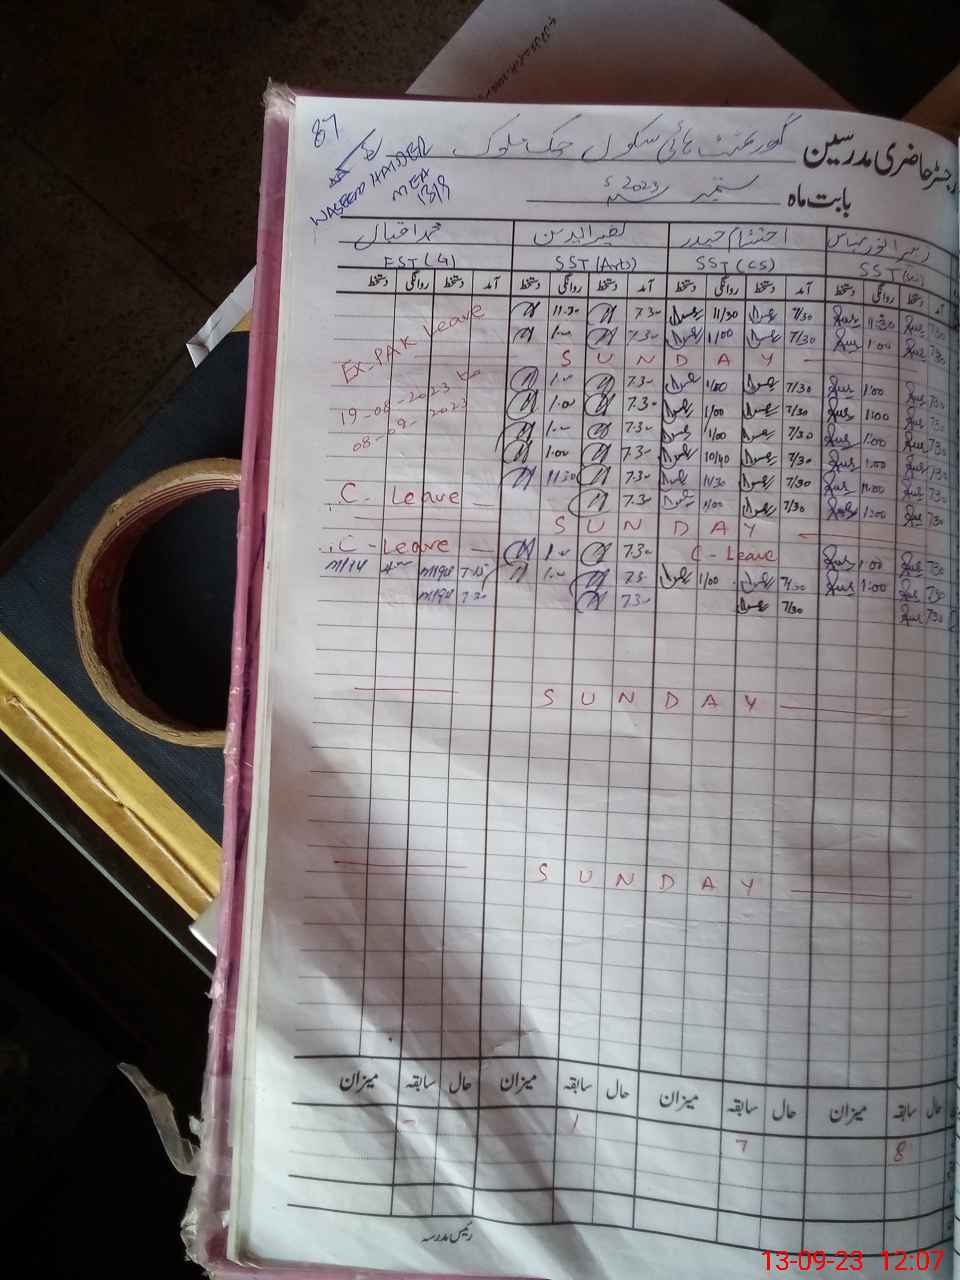 87
WASEEM HAIDER
MEA
13/9
رجسٹر حاضری مدرسین گورنمنٹ ہائی سکول چک ملوک
بابت ماہ ستمبر 2023ء
احتشام حیدر نصیر الدین محمد اقبال
SST (CS) SST (Arts) EST (G)
آمد دستخط روانگی دستخط آمد دستخط روانگی دستخط آمد دستخط روانگی دستخط آمد دستخط روانگی دستخط
EX-PAK Leave
19-08-2023 to
08-09-2023
11.30 7.30 11/30 7/30 11:30 7:30
1.00 7.30 1/00 7/30 1:00 7:30
S U N D A Y
1.00 7.30 1/00 7/30 1:00 7:30
1.00 7.30 1/00 7/30 1:00 7:30
1.00 7.30 1/00 7/30 1:00 7:30
1.00 7.30 10/40 7/30 1:00 7:30
11.30 7.30 11/30 7/30 7:30
C - Leave 7.30 1/00 7/30 1:00 7:30
S U N D A Y
C - Leave 1.00 7.30 C - Leave 1:00 7:30
1.00 7.30 1/00 7/30 1:00 7:30
7.30 7/30 7:30
S U N D A Y
S U N D A Y
حال سابقہ میزان حال سابقہ میزان حال سابقہ میزان حال سابقہ میزان
- 1 7 8
رئیس مدرسہ
13-09-23 12:07